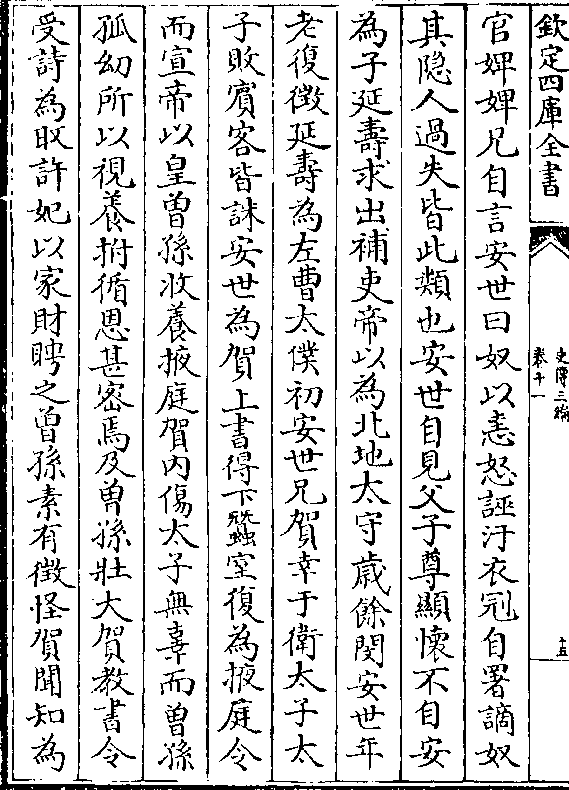 欽定四庫全書
史傳三編
卷十一
十五
官婢婢兄自言安世曰奴以恚怒誣汙衣冠自署謫奴
其隐人過失皆此類也安世自見父子尊顯懷不自安
為子延壽求出補吏帝以為北地太守歲餘閔安世年
老復徴延壽為左曹太僕初安世兄賀幸于衛太子太
子敗賓客皆誅安世為賀上書得下蠶室復為掖庭令
而宣帝以皇曽孫收養掖庭賀内傷太子無辜而曽孫
孤幼所以視養拊循恩甚密焉及曽孫壯大賀教書令
受詩為取許妃以家財聘之曽孫素有徵怪賀聞知為